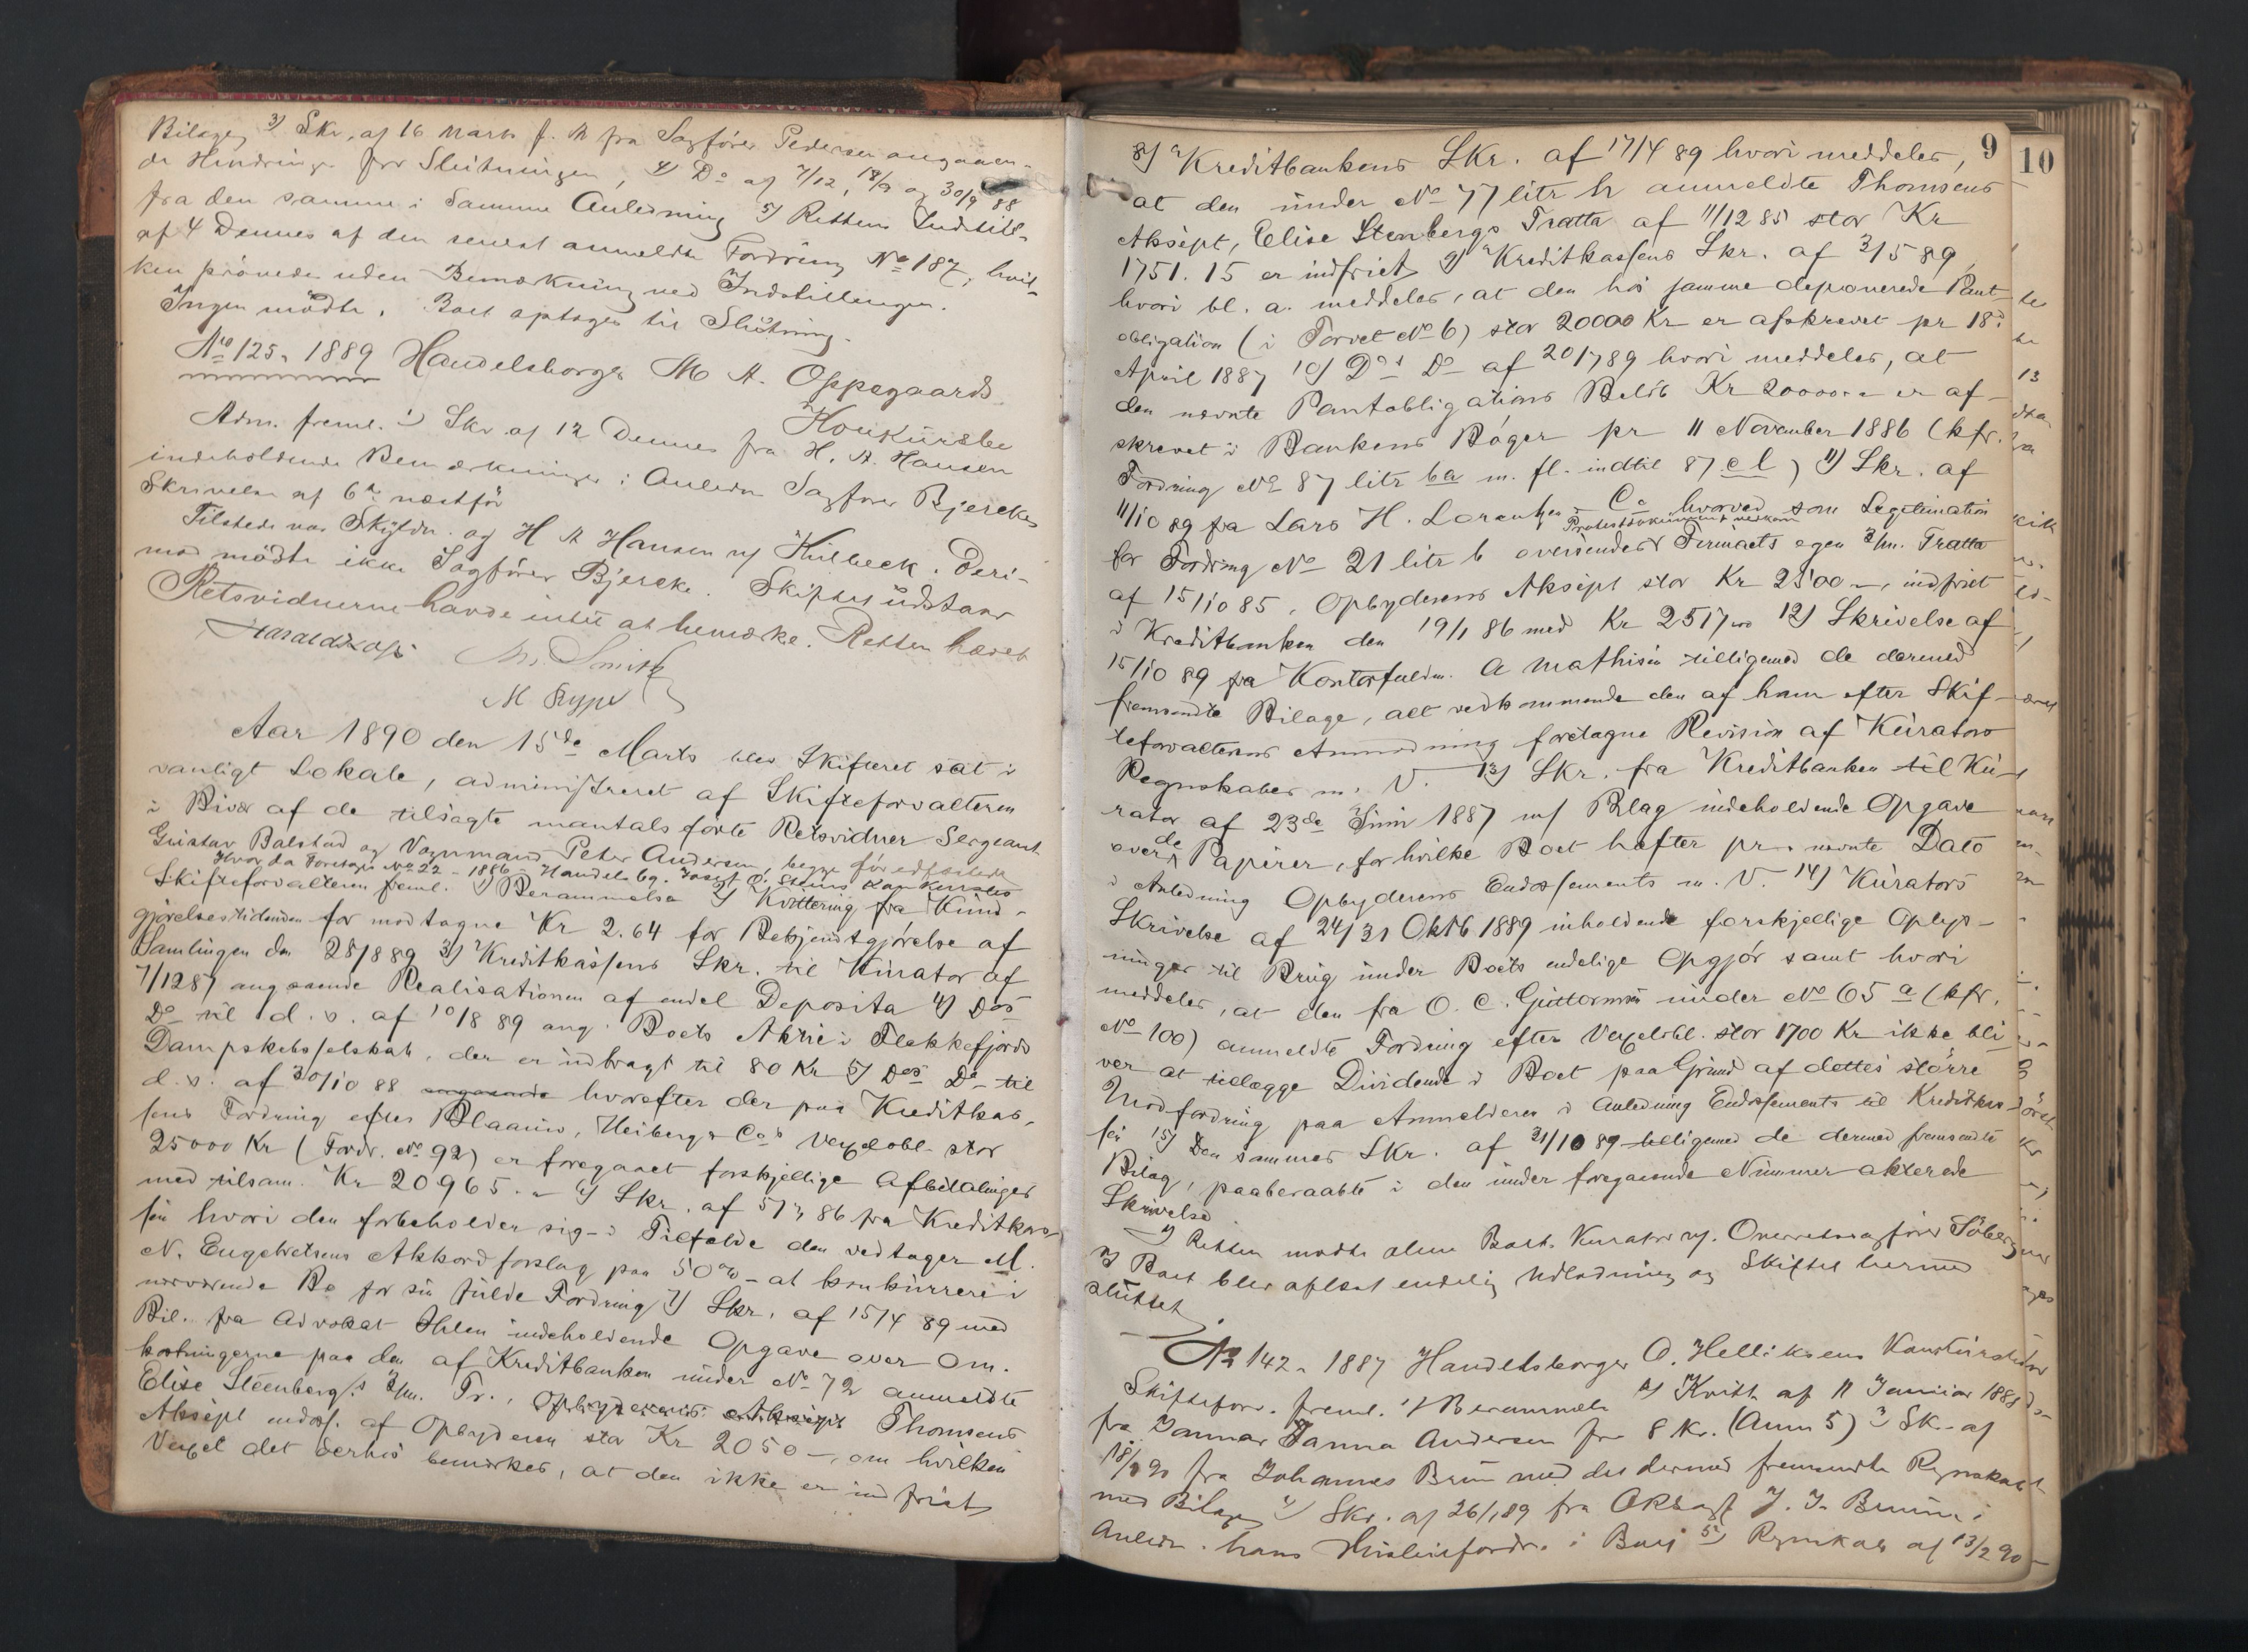 Bilage, 3) Skr. af 16 Marts f. A fra Sagfører Pedersen angaaen-
de Hindringe for Slutningen, 4) Do af 7/12, 18/9 og 30/9 88
fra den samme i Samme Anledning 5) Rettens Indstill-
af 4 Dennes af den senest anmeldte Fordring No 187, hvil-
ken prövedes uden Bemærkning ved Indstillingen.
Ingen mödte. Boet optages til Slutning.
No 125. 1889 Handelsborger M A. Oppegaards
Konkursbo
Adm. freml. 1) Skr. af 12 Dennes fra H. A. Hansen
indeholdende Bemærkninger i Anledn Sagfører Bjerckes
Skrivelse af 6te næstfór
Tilstede var Skyldn. og H A Hansen v/ Kulbeck. Deri-
mod mödte ikke Sagfører Bjercke. Skiftet udstaar
Retsvidnerne havde intet at bemærke. Retten hævet
M. Smith
M Rype
Aar 1890 den 15de Marts blev Skifteret sat i
vanligt Lokale, administreret af Skifteforvalteren
i Bivær af de tilsagte mantalsførte Retsvidner Sergeant
Gustav Balstad og Vognmand Peter Andersen, begge för edfæstede
Hvor da Foretoges No 22 - 1886 - Handelsbg. Josef O. Steens Konkursbo
Skifteforvalteren freml. 1) Berammelse 2) Kvittering fra Kund-
gjörelsestidenden for modtagne Kr 2.64 for Bekjendtgjörelse af
Samlingen den 28/8 89 3) Kreditkassens Skr. til Kurator af
7/12 87 angaaende Realisationen af endel Deposita 4) Dos
Do til d. s. af 10/8 89 ang. Boets Aktie i Flekkefjords
Dampskibsselskab, der er indbragt til 80 Kr 5) Dos Do til
d. s. af 30/10 88 angaaende hvorefter der paa Kreditkas-
sens Fordring efter Blaauw, Heiberg & Cos Vexelobl. stor
25000 Kr (Fordr. No 92) er foregaaet forskjellige Afbetalinger
med tilsam. Kr 20965.- 6) Skr. af 5/3 86 fra Kreditkas-
sen hvori den forbeholder sig - i Tilfælde den vedtager M.
N. Engebretsens Akkordforslag paa 50% - at konkurrere i
nærværende Bo for sin fulde Fordring 7) Skr. af 15/4 89 med
Bil. fra Advokat Ihlen indeholdende Opgave over Om-
kostningerne paa den af Kreditbanken under No 72 anmeldte
Elise Steenberg's 3/m. Tr., Opbyderens Aksept Thomsens
Aksept endoss. af Opbyderen stor Kr 2050 -, om hvilken
Vexel det derhos bemærkes, at den ikke er indfriet,
9
10
8) Kreditbankens Skr. af 17/4 89 hvori meddeles,
at den under No 77 litr h anmeldte Thomsens
Aksept, Elise Stenbergs Tratta af 11/12 85 stor Kr
1751.15 er indfriet 9) Kreditkassens Skr. af 3/5 89,
hvori bl. a. meddeles, at den hos samme deponerede Pant-
obligation (i Torvet No 6) stor 20000 Kr er afskrevet pr 18de
April 1887 10) Dos Do af 20/7 89 hvori meddeles, at
den nævnte Pantobligations Beløb Kr 20000.- er af-
skrevet i Bankens Bøger pr 11 November 1886 (kfr.
Fordring No 87 litr ba m. fl. indtil 87 cl) 11) Skr. af
11/10 89 fra Lars H. Lorentzen & Co hvorved som Legitimation
for Fordring No 21 litr b oversendes Firmaets egen 3/m. Tratta
af 15/10 85, Opbyderens Aksept stor Kr 2500 -, indfriet
i Kreditbanken den 19/1 86 med Kr 2517.00 12) Skrivelse af
15/10 89 fra Kontorfuldm. A Mathisen tilligemed de dermed
fremsendte Bilage, alt vedkommende den af ham efter Skif-
teforvalterens Anmodning foretagne Revision af Kurators
Regnskaber m. V. 13) Skr. fra Kreditbanken til Ku-
rator af 23de Juni 1887 m/ Bilag indeholdende Opgave
over de Papirer, for hvilke Boet hefter pr. nævnte Dato
i Anledning Opbyderens Endossements m. V. 14) Kurators
Skrivelse af 24/31 Oktb 1889 inholdende forskjellige Oplys-
ninger til Brug under Boets endelige Opgjór samt hvori
meddeles, at den fra O. C. Guttormsen under No 65 a (kfr.
No 100) anmeldte Fordring efter Vexelobl. stor 1700 Kr ikke bli-
ver at tillægge Dividende i Boet paa Grund af dettes större
Modfordring paa Anmelderen i Anledning Endossements til Kreditkas-
sen 15) Den sammes Skr. af 31/10 89 tilligemed de dermed fremsendte
Bilag, paaberaabte i den under foregaaende Nummer akterede
Skrivelse
Retten mødte alene Boets Kurator v/ Overretssagfører Söberg
Boet blev aflest endelig Udlodning og Skiftet hermed
sluttet
No 142 - 1887 Handelsborger O. Helliksens Konkursbo
Skifteforv. freml. 1) Berammelse 2) Kvitt. af 11 Januar 1888
fra Janna Andersen for 8 Kr. (Anm 5) 3) Sk. af
18/2 90 fra Johannes Bruun med det dermed fremsendte Regnskab
med Bilage 4) Skr. af 26/1 89 fra ORSagf J. J. Bruun i
Anledn. hans Husleiefordr. i Boet 5) Regnskab af 13/2 90 -